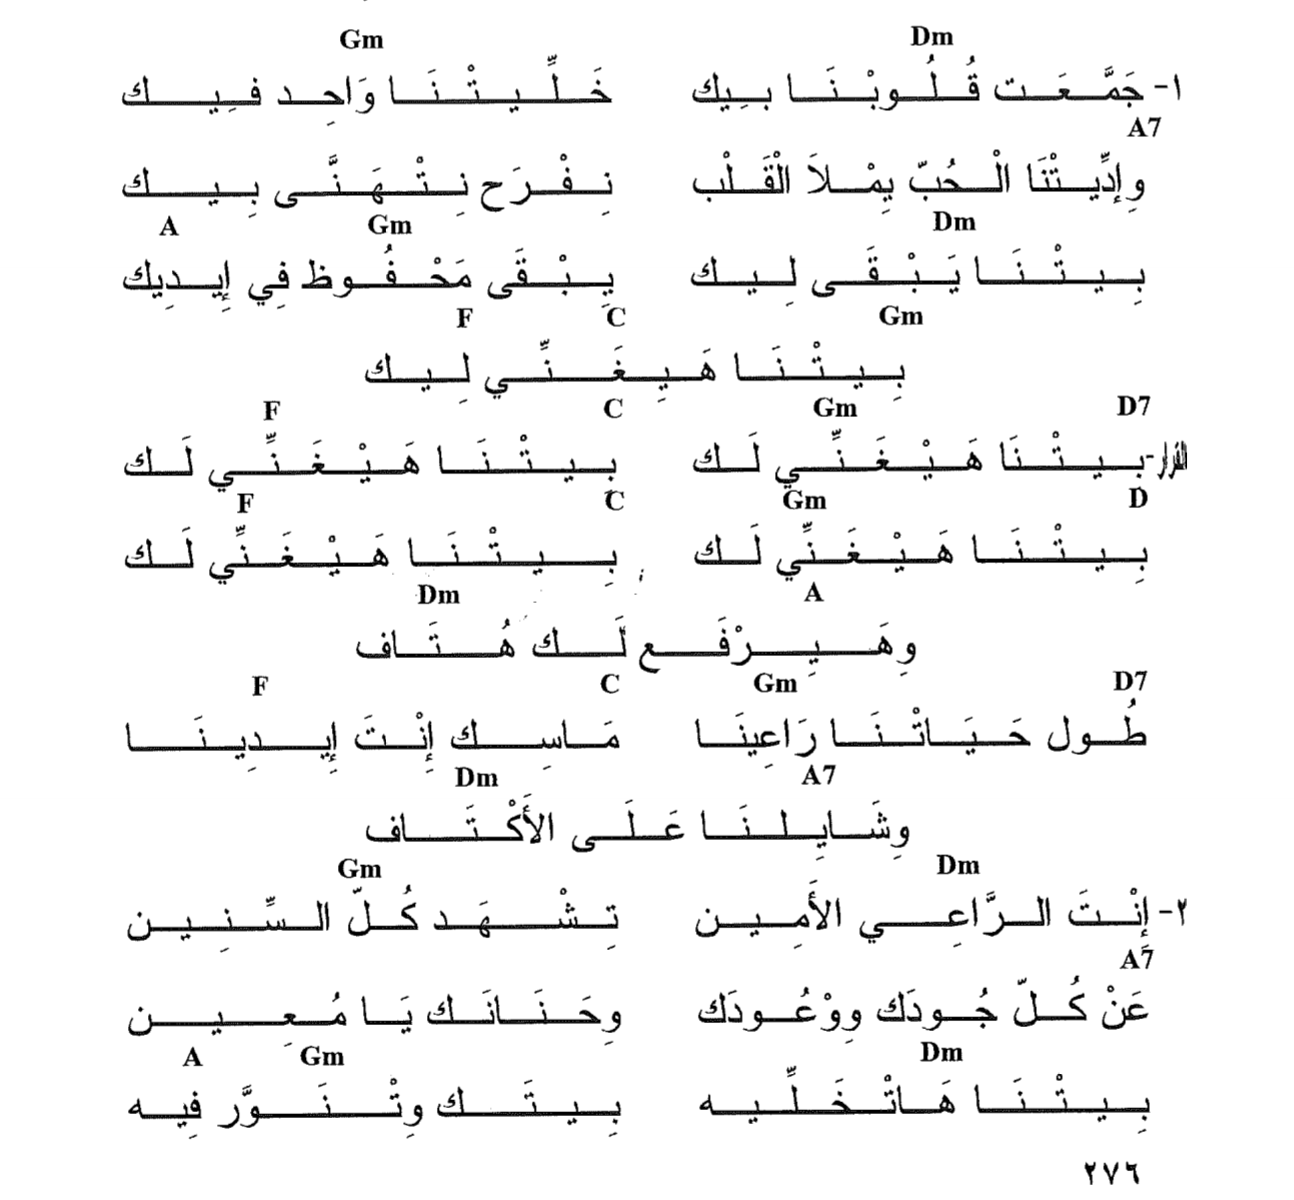 Dm Gm
١- جَمَّعَت قُلُوبْنَا بِيك خَلِّيتْنَا وَاحِد فِيك
A7
وِإِدِّيتْنَا الْحُبّ يِمْلاَ الْقَلْب نِفْرَح نِتْهَنَّى بِيك
Dm Gm A
بِيتْنَا يَبْقَى لِيك يِبْقَى مَحْفُوظ فِي إِيدِيك
Gm C F
بِيتْنَا هَيِغَنِّي لِيك
D7 Gm C F
القرار- بِيتْنَا هَيْغَنِّي لَك بِيتْنَا هَيْغَنِّي لَك
D Gm C F
بِيتْنَا هَيْغَنِّي لَك بِيتْنَا هَيْغَنِّي لَك
A Dm
وِهَيِرْفَع لَك هُتَاف
D7 Gm C F
طُول حَيَاتْنَا رَاعِينَا مَاسِك إِنْتَ إِيدِينَا
A7 Dm
وِشَايِلنَا عَلَى الأَكْتَاف
Dm Gm
٢- إِنْتَ الرَّاعِي الأَمِين تِشْهَد كُلّ السِّنِين
A7
عَنْ كُلّ جُودَك وِوْعُودَك وِحَنَانَك يَا مُعِين
Dm Gm A
بِيتْنَا هَاتْخَلِّيه بِيتَك وِتْنَوَّر فِيه
٢٧٦